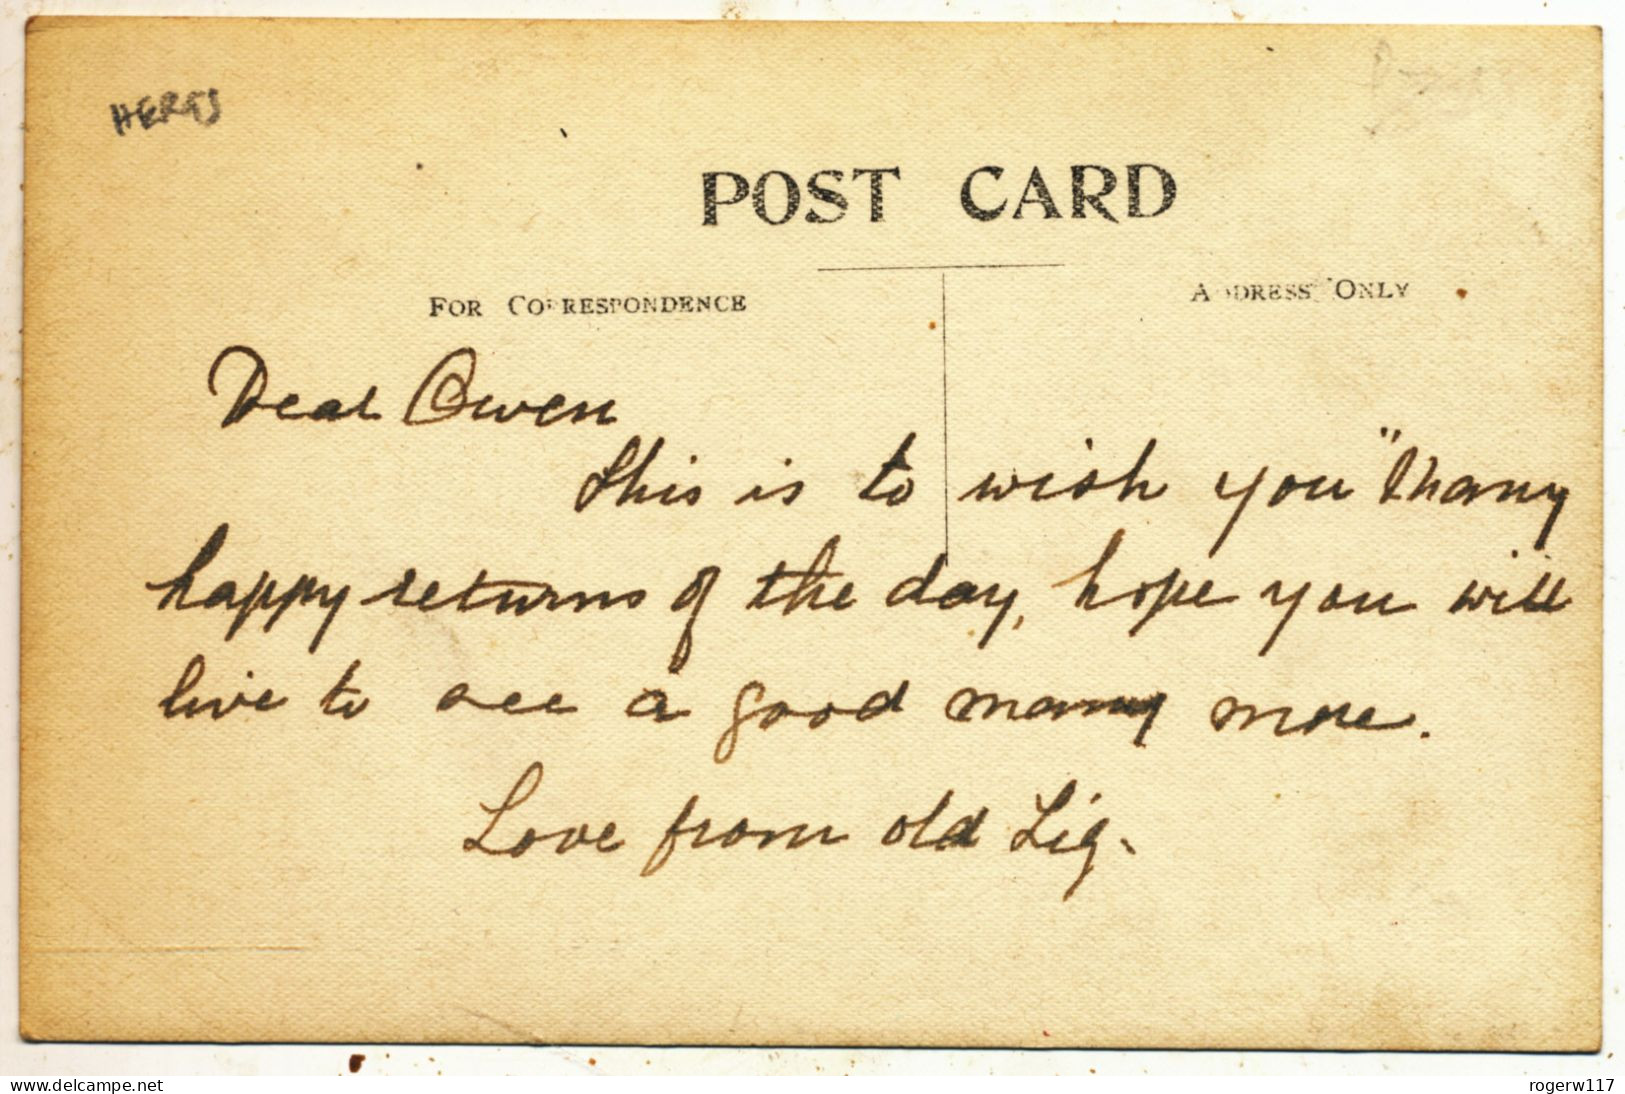 HERTS
POST CARD
FOR CORRESPONDENCE
ADDRESS ONLY
Dear Owen
This is to wish you "Many
happy returns of the day, hope you will
live to see a good many more.
Love from old Lig.
www.delcampe.net
rogerw117